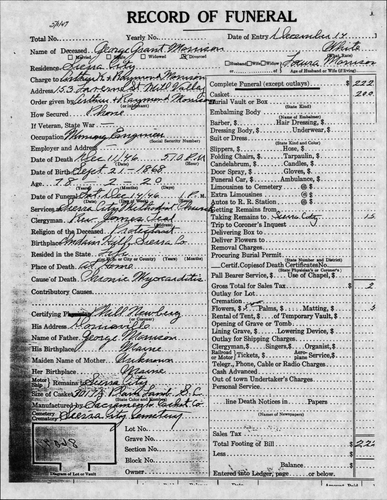 RECORD OF FUNERAL
Total No. Yearly No. Date of Entry December 17
Name of Deceased George Grant Morrison White
Married Widowed Divorced
Residence Sierra City Husband Wife Widow Laura Morrison
Age of Husband or Wife (If living)
Charge to Arthur & Raymond Morrison
Address 153 Laverne St Mill Valley
Order given by Arthur & Raymond Morrison
How Secured Phone
If Veteran, State War
Occupation Mining Engineer
(Social Security Number)
Employer and Address
Date of Death Dec 11/46 5:10 P.M.
Date of Birth Sept 21-1868
Age 78 2 20
Date of Funeral Dec 14/46 1 P.M.
Services at Sierra City Methodist Church
Clergyman Rev. George Teal
Religion of the Deceased Protestant
Birthplace Indian Hill, Sierra Co.
Resided in the State Life
(or City or County) (Months or Years)
Place of Death at Home
Cause of Death Chronic Myocarditis
Contributory Causes
Certifying Physician Will Newbury
His Address Downieville
Name of Father George Morrison
His Birthplace Maine
Maiden Name of Mother Unknown
Her Birthplace Maine
Motor Ship Remains to Sierra City
Size of Casket
Manufactured by Sacramento Casket Co.
Cemetery Sierra City Cemetery
Lot No.
Grave No.
Section No.
Block No.
Owner
Diagram of Lot or Vault
Complete Funeral (except outlays) $ 222
Casket $ 200
Burial Vault or Box $
(State Kind)
Embalming Body $
(Name of Embalmer)
Barber, $ Hair Dressing, $ $
Dressing Body, $ Underwear, $ $
Suit or Dress $
(State Kind and Color)
Slippers, $ Hose, $ $
Folding Chairs, $ Tarpaulin, $ $
Candelabrum, $ Candles, $ $
Door Spray, $ Gloves, $ $
Funeral Car, $ Ambulance, $ $
Limousines to Cemetery @ $ $
Extra Limousines @ $ $
Autos to R. R. Station @ $ $
Getting Remains from $
Taking Remains to Sierra City $ 15
Trip to Coroner's Inquest $
Delivering Box to $
Deliver Flowers to $
Removal Charges $
Procuring Burial Permit $
(State Member and District)
Certif. Copies of Death Certificates No. $
(State Physician's or Coroner's)
Pall Bearer Service, $ Use of Chapel, $ $
Gross Total for Sales Tax $ 2
Outlay for Lot $
Cremation $
Flowers, $ Palms, $ Matting, $ $ 5
Rental of Tent, $ of Temporary Vault, $ $
Opening of Grave or Tomb $
Lining Grave, $ Lowering Device, $ $
Outlay for Shipping Charges $
Clergyman, $ Singers, $ Organist, $ $
Railroad or Motor Tickets, $ Aeroplane Service, $ $
Telegr., Phone, Cable or Radio Charges $
Cash Advanced $
Out of town Undertaker's Charges $
Personal Service $
line Death Notices in Papers
(Names of Newspapers)
Sales Tax $
Total Footing of Bill $ 222
Less $
Balance $
Entered into Ledger, page or below $